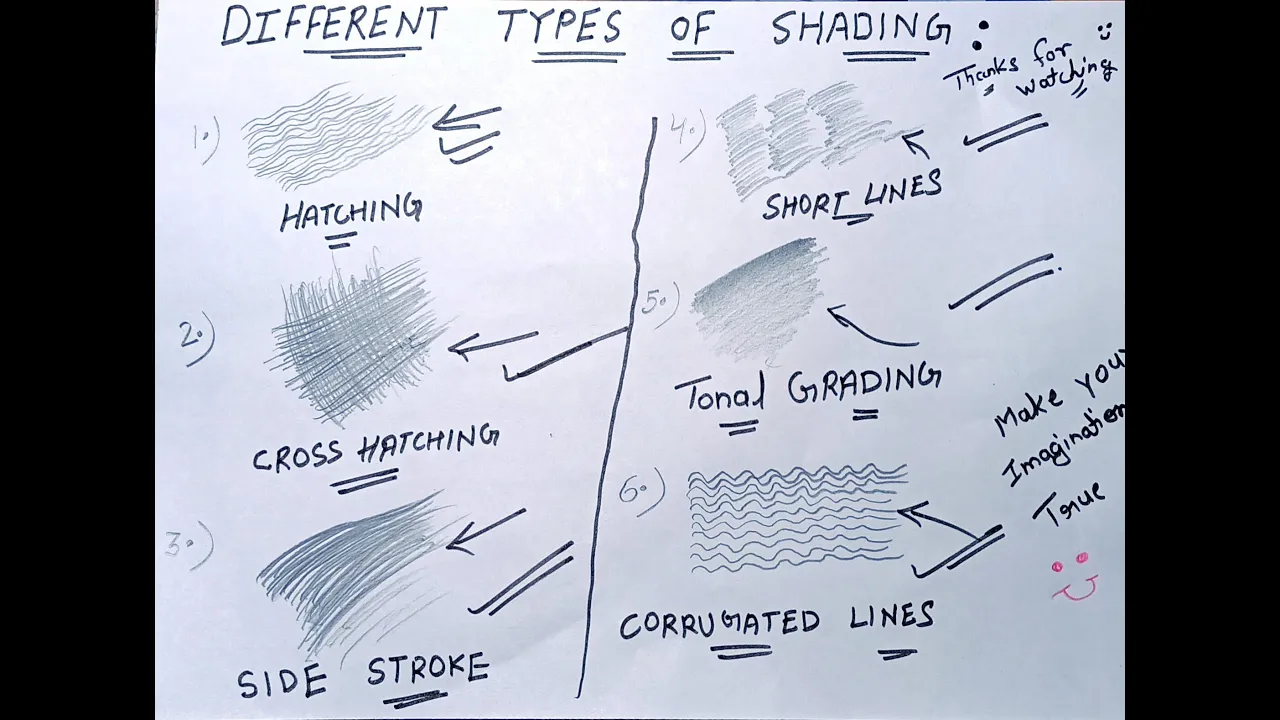 DIFFERENT TYPES OF SHADING :
Thanks for
watching
1.)
HATCHING
2.)
CROSS HATCHING
3.)
SIDE STROKE
4.)
SHORT LINES
5.)
Tonal GRADING
6.)
CORRUGATED LINES
Make your
Imagination
True